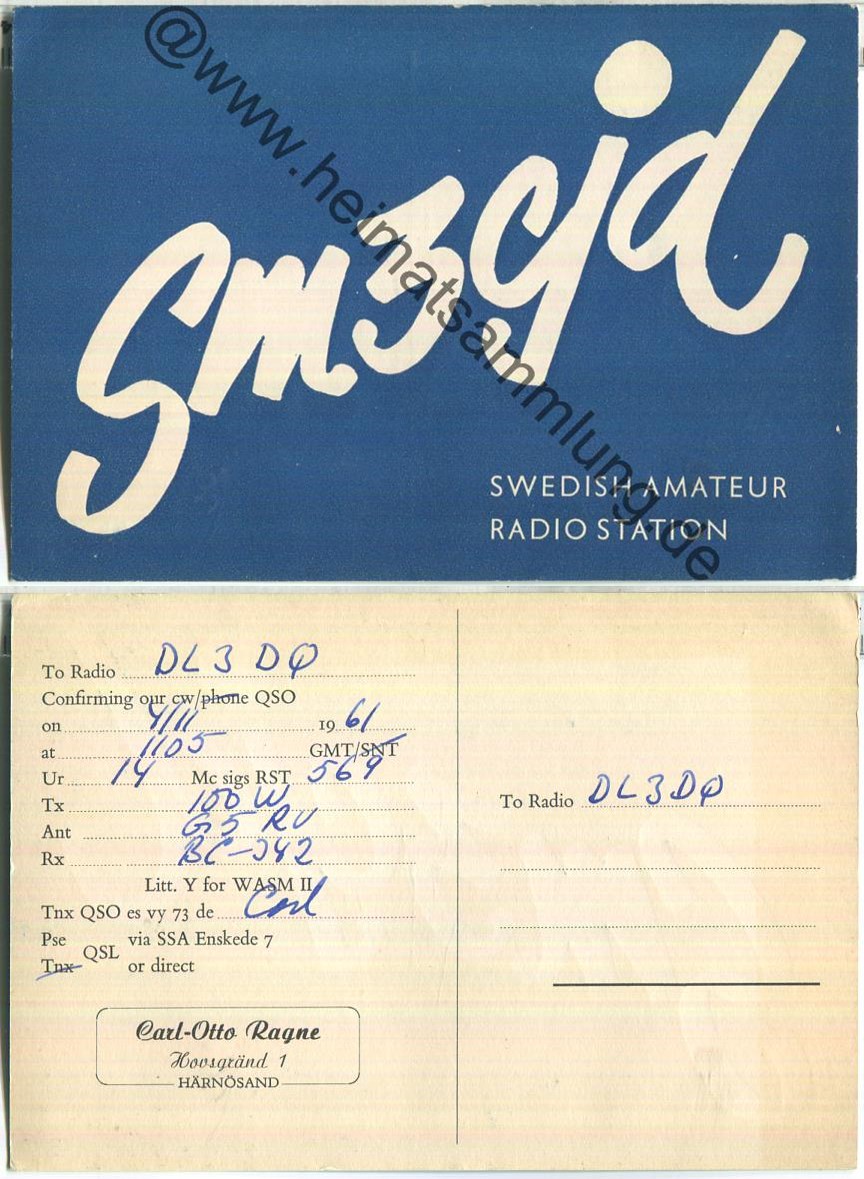 @www.heimatsammlung.de
sm3cjd
SWEDISH AMATEUR
RADIO STATION
To Radio DL3DQ
Confirming our cw/phone QSO
on 4/11 1961
at 1105 GMT/SNT
Ur 14 Mc sigs RST 569
Tx 100 W
Ant G5RV
Rx BC-342
Litt. Y for WASM II
Tnx QSO es vy 73 de Carl
Pse QSL via SSA Enskede 7
Tnx or direct
Carl-Otto Ragne
Hovsgränd 1
HÄRNÖSAND
To Radio DL3DQ